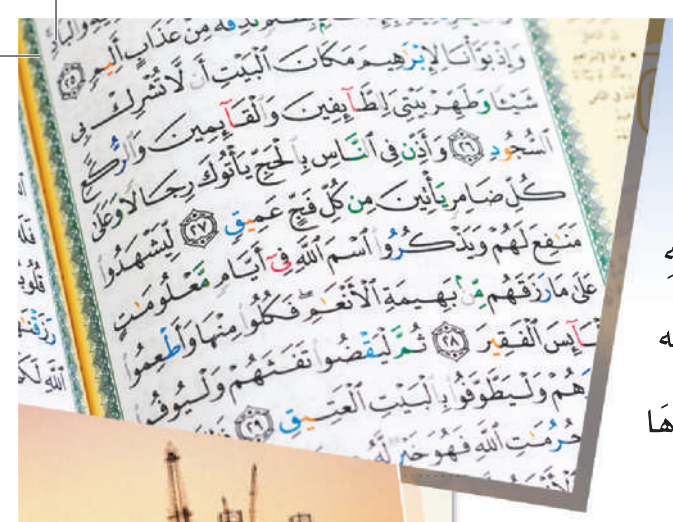 نُذِقْهُ مِنْ عَذَابٍ أَلِيمٍ ٢٥
وَإِذْ بَوَّأْنَا لِإِبْرَٰهِيمَ مَكَانَ ٱلْبَيْتِ أَن لَّا تُشْرِكْ بِى
شَيْـًٔا وَطَهِّرْ بَيْتِىَ لِلطَّآئِفِينَ وَٱلْقَآئِمِينَ وَٱلرُّكَّعِ
ٱلسُّجُودِ ٢٦ وَأَذِّن فِى ٱلنَّاسِ بِٱلْحَجِّ يَأْتُوكَ رِجَالًا وَعَلَىٰ
كُلِّ ضَامِرٍ يَأْتِينَ مِن كُلِّ فَجٍّ عَمِيقٍ ٢٧ لِّيَشْهَدُوا۟
مَنَٰفِعَ لَهُمْ وَيَذْكُرُوا۟ ٱسْمَ ٱللَّهِ فِىٓ أَيَّامٍ مَّعْلُومَٰتٍ
عَلَىٰ مَا رَزَقَهُم مِّنۢ بَهِيمَةِ ٱلْأَنْعَٰمِ ۖ فَكُلُوا۟ مِنْهَا وَأَطْعِمُوا۟
ـبَآئِسَ ٱلْفَقِيرَ ٢٨ ثُمَّ لْيَقْضُوا۟ تَفَثَهُمْ وَلْيُوفُوا۟
ـرَهُمْ وَلْيَطَّوَّفُوا۟ بِٱلْبَيْتِ ٱلْعَتِيقِ ٢٩
حُرُمَٰتِ ٱللَّهِ فَهُوَ خَيْرٌ لَّهُۥ
هَا